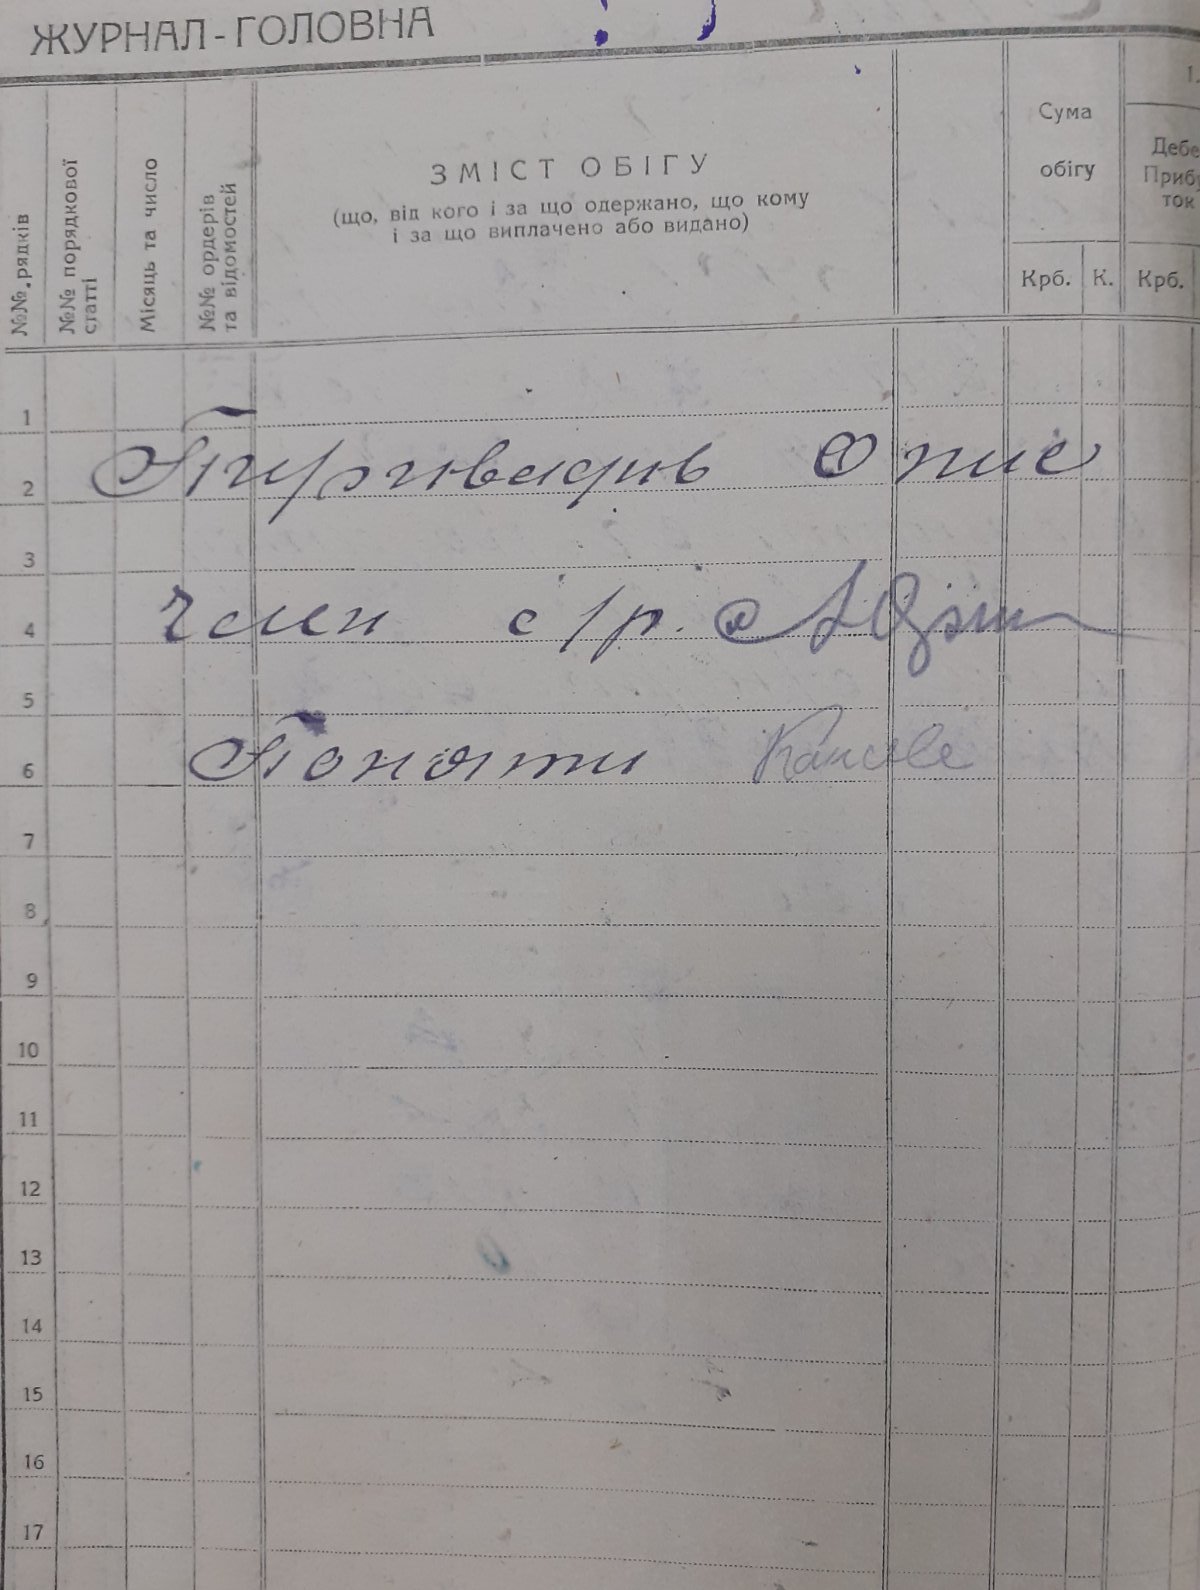 ЖУРНАЛ-ГОЛОВНА
№№ рядків
№№ порядкової
статті
Місяць та число
№№ ордерів
та відомостей
ЗМІСТ ОБІГУ
(що, від кого і за що одержано, що кому
і за що виплачено або видано)
Сума
обігу
Крб.
К.
1.
Дебе
Приб
ток
Крб.
1
2
Перевірив Опис
3
член с/р.
4
5
6
Поняти
7
8
9
10
11
12
13
14
15
16
17